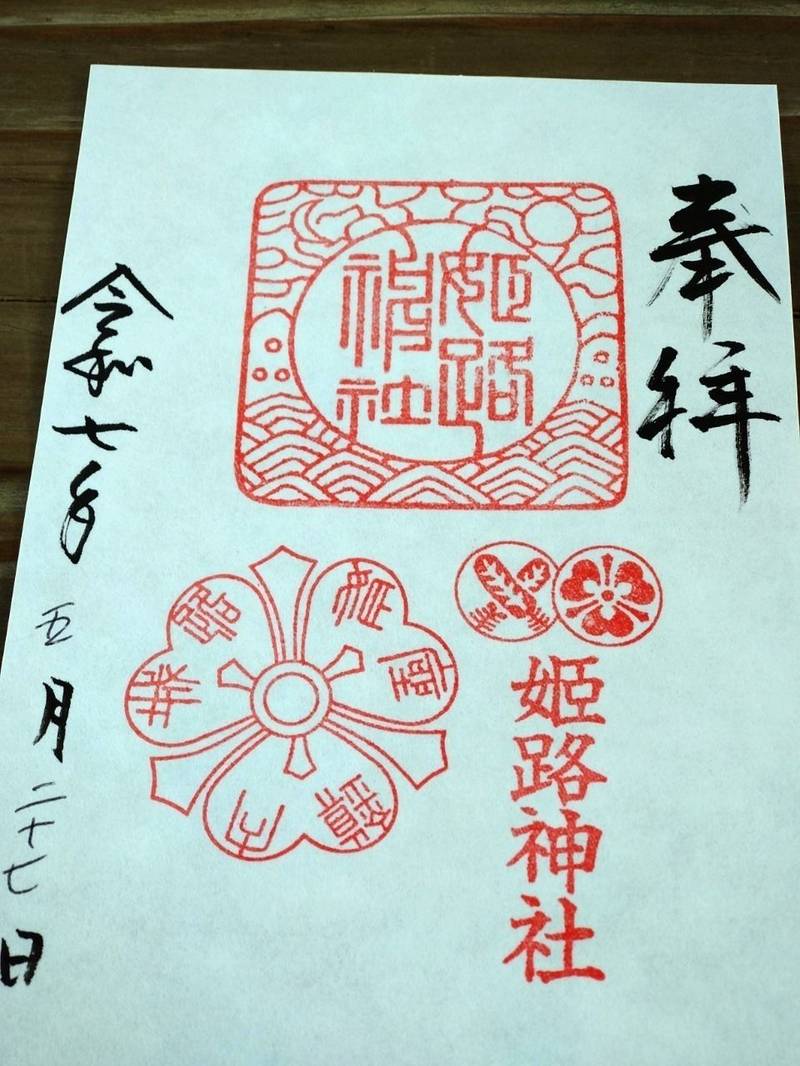 奉拝
姫路神社
姫路神社
令和七年 五月二十七日